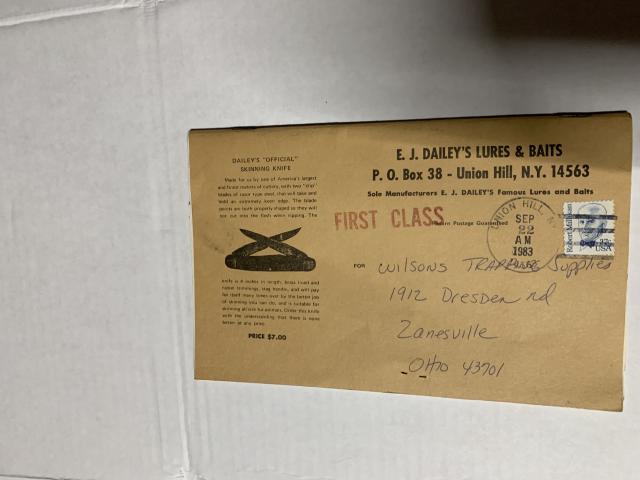 DAILEY'S "OFFICIAL"
SKINNING KNIFE
Made for us by one of America's largest
and finest makers of cutlery, with two "slip"
blades of razor type steel, that will take and
hold an extremely keen edge. The blade
points are both properly shaped so they will
not cut into the flesh when ripping. The
knife is in length, brass lined and
nickel trimmings, stag handle, and will pay
for itself many times over by the better job
of skinning you can do, and is suitable for
skinning all size fur animals. Order this knife
with the understanding that there is none
better at any price.
PRICE $7.00
E. J. DAILEY'S LURES & BAITS
P. O. Box 38 - Union Hill, N.Y. 14563
Sole Manufacturers E. J. DAILEY'S Famous Lures and Baits
FIRST CLASS
Return Postage Guaranteed
UNION HILL, N.Y.
SEP
22
AM
1983
14563
Robert Millikan
USA
FOR
Wilsons Trapping Supplies
1912 Dresden rd
Zanesville
Ohio 43701